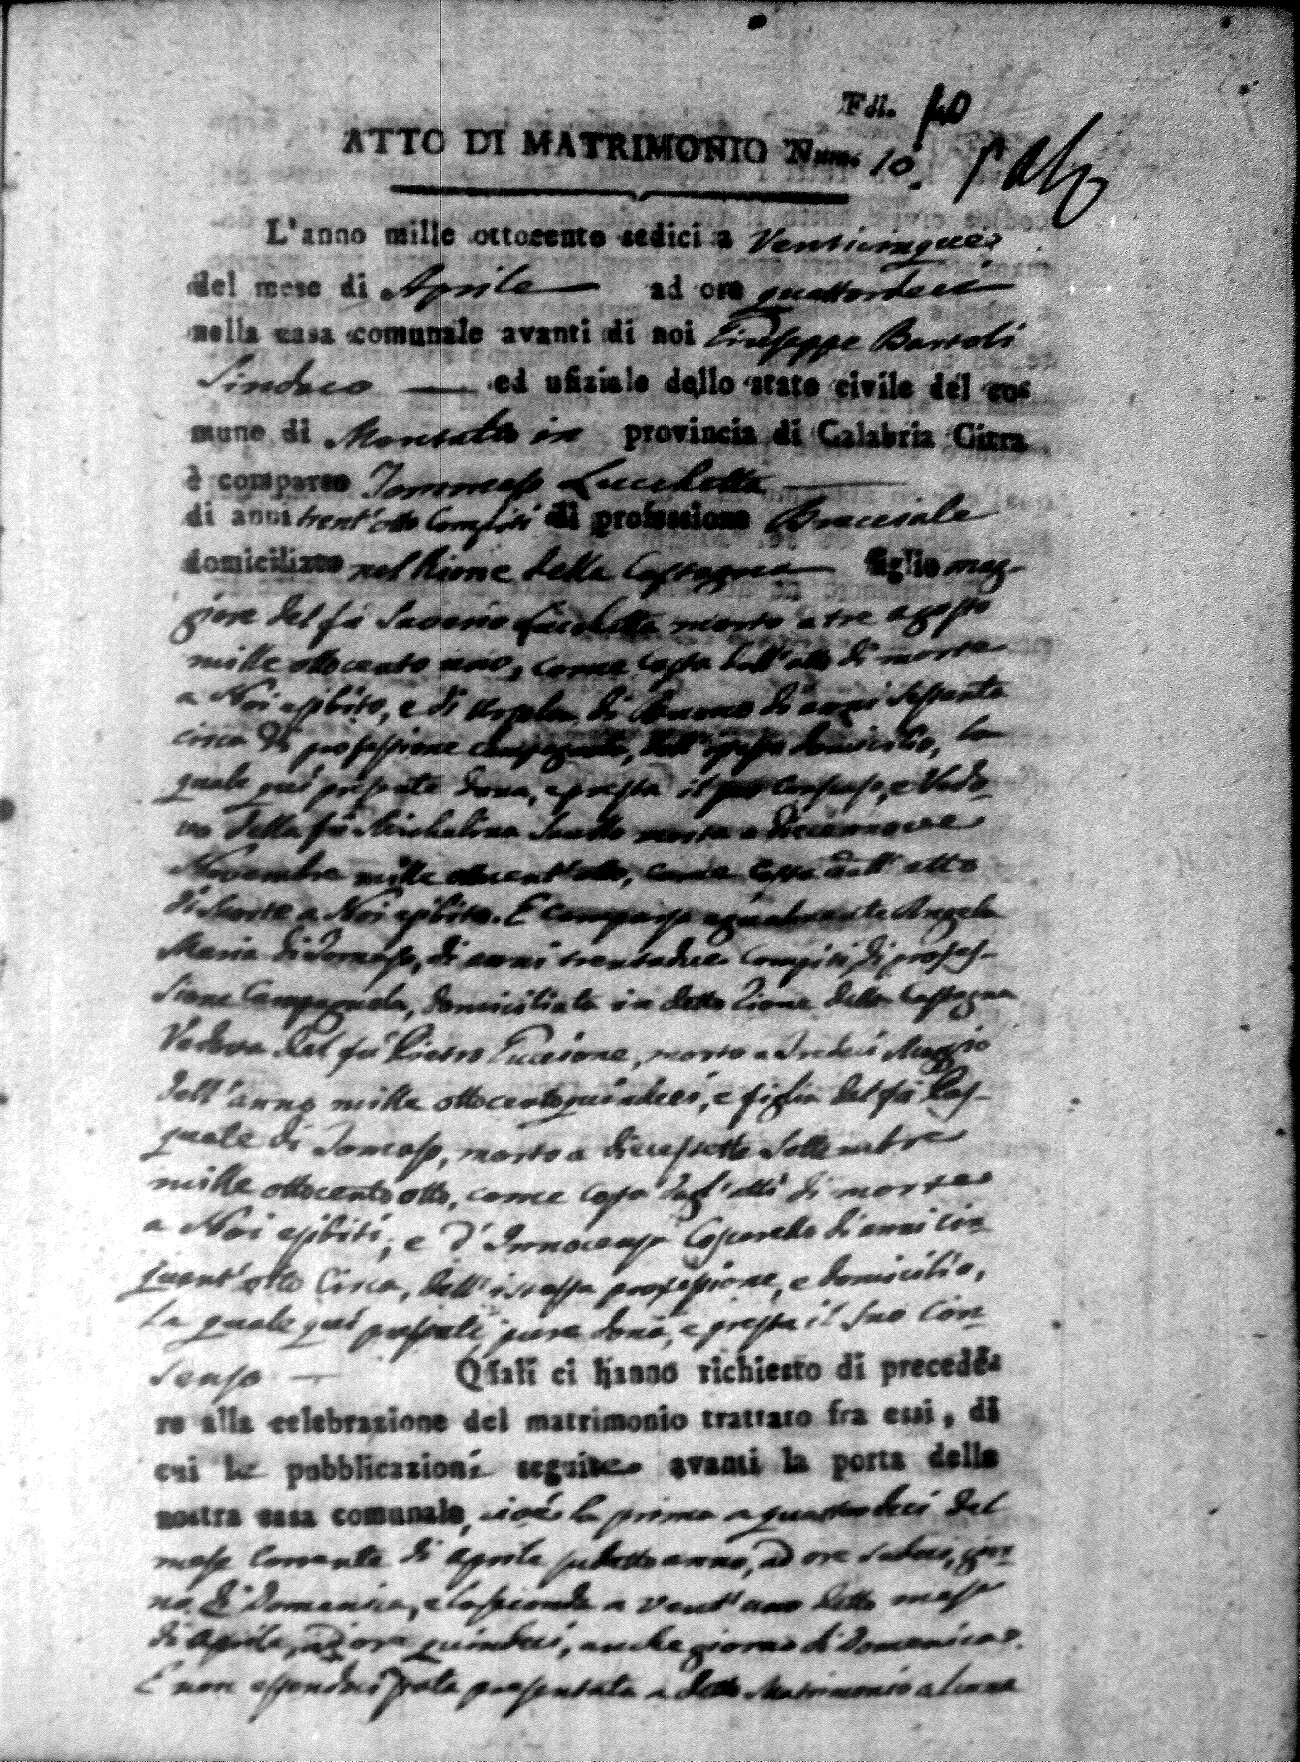 Fol. 10
ATTO DI MATRIMONIO Num. 10.
L'anno mille ottocento sedici a Venticinque
del mese di Aprile ad ore quattordeci
nella casa comunale avanti di noi Giuseppe Bartoli
Sindaco ed ufiziale dello stato civile del co-
mune di Montalto in provincia di Calabria Citra
è comparso Tommaso Lucchetta
di anni trent'otto Compiti di professione Bracciale
domiciliato nel Rione della Castagna figlio mag-
giore del fù Saverio Lucchetta morto a tre agosto
mille ottocento uno, come costa dall'atto di morte
a Noi esibito, e di di anni sessanta
circa di professione campagnola, dell'istesso domicilio, la
quale quì presente dona, e presta il suo consenso, e Vedo-
vo della fù Michelina morta a diecinove
Novembre mille ottocent'otto, come costa dall'atto
di Morte a Noi esibito. E comparsa egualmente Angela
Maria di Tomaso, di anni trentadue Compiti, di profes-
sione Campagnola, domiciliata in detto Rione della Castagna
Vedova del fù Pietro Puccione, morto a Tredeci Maggio
dell'anno mille ottocentoquindeci, e figlia del fù Pas-
quale di Tomaso, morto a diecessette Settembre
mille ottocento otto, come costa dagl'atti di morte
a Noi esibiti, e d'Innocenza Coscarello di anni cin-
quant'otto Circa, dell'istessa professione, e domicilio,
La quale quì presente pure dona, e presta il suo Con-
senso Quali ci hanno richiesto di procede-
re alla celebrazione del matrimonio trattato fra essi, di
cui le pubblicazioni seguite avanti la porta della
nostra casa comunale, cioè la prima a quattordeci del
mese Corrente di Aprile sudetto anno, ad ore sedeci, gior-
no di Domenica, e la seconda a vent'uno detto mese
di Aprile, ad ore quindeci, anche giorno di Domenica.
E non essendosi stata presentata a detto Matrimonio alcuna